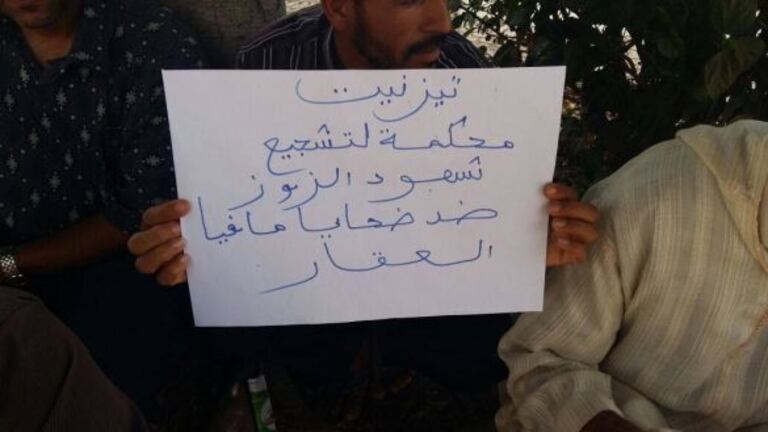 تيزنيت
محكمة لتشجيع
شهود الزور
ضد ضحايا مافيا
العقار